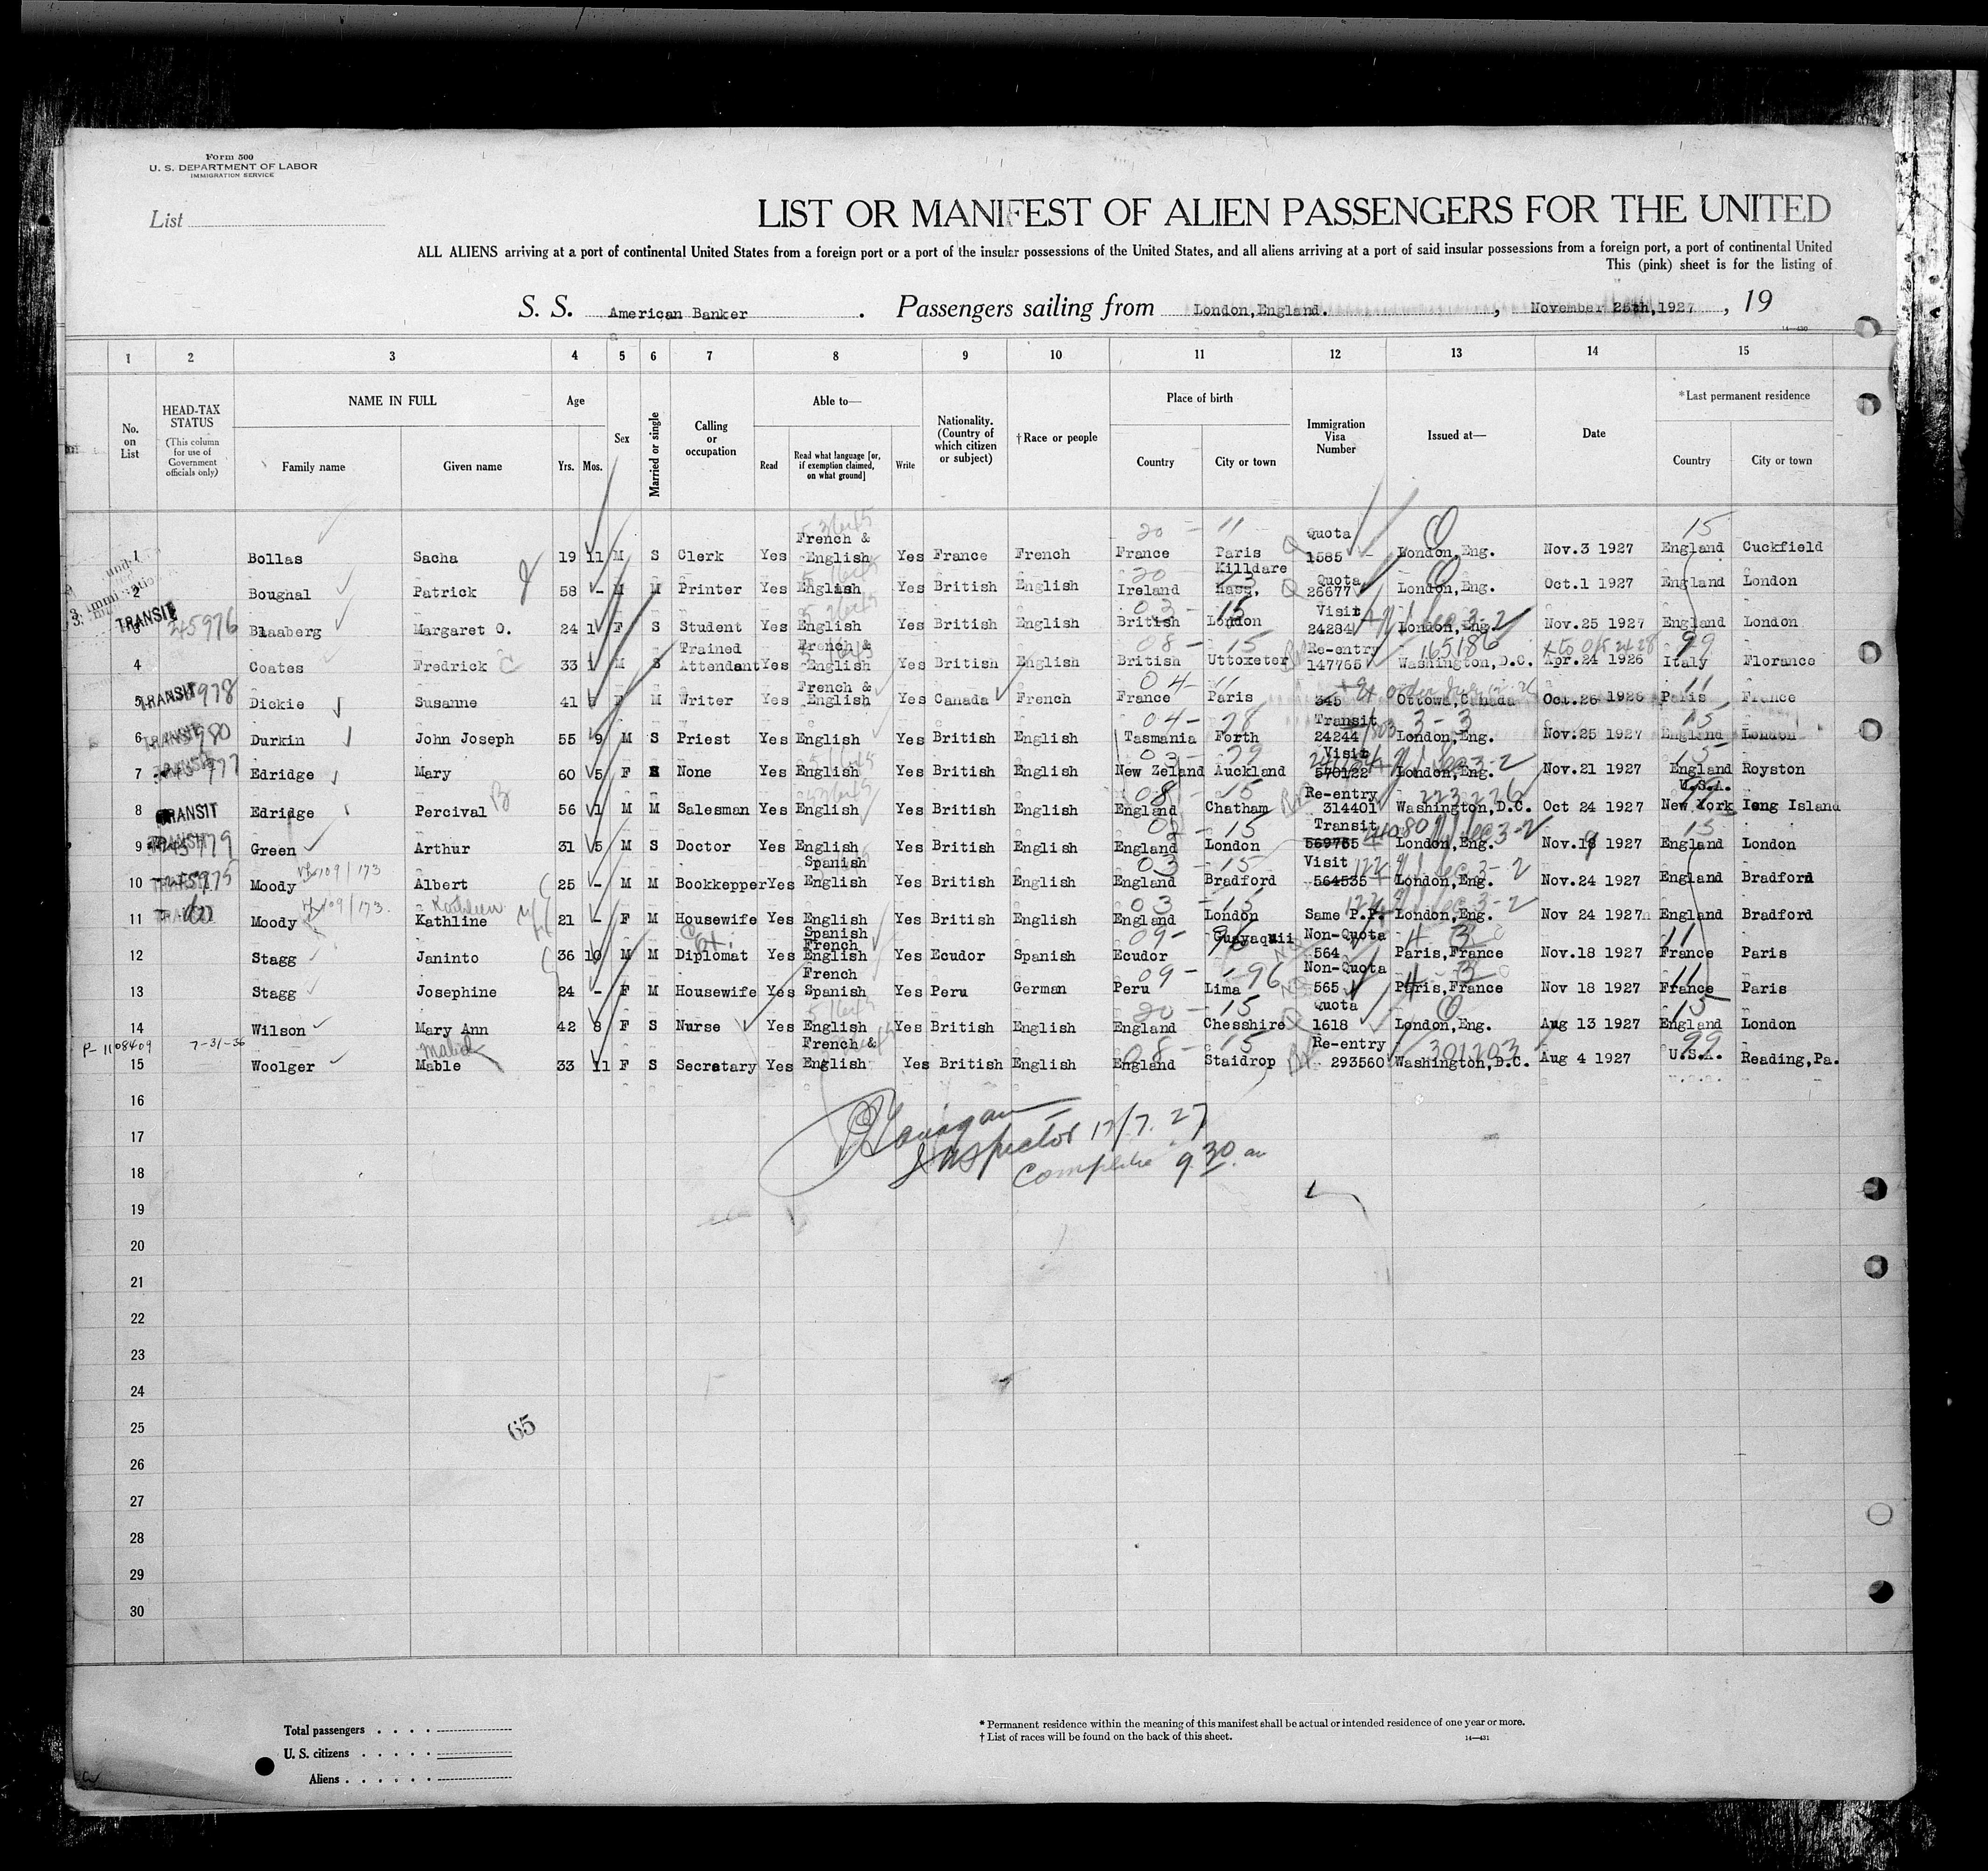 Form 500
U. S. DEPARTMENT OF LABOR
IMMIGRATION SERVICE
List
LIST OR MANIFEST OF ALIEN PASSENGERS FOR THE UNITED
ALL ALIENS arriving at a port of continental United States from a foreign port or a port of the insular possessions of the United States, and all aliens arriving at a port of said insular possessions from a foreign port, a port of continental United
This (pink) sheet is for the listing of
S. S. American Banker . Passengers sailing from London,England. , November 25th,1927 , 19
14—430
1 2 3 4 5 6 7 8 9 10 11 12 13 14 15
No. on List
HEAD-TAX STATUS (This column for use of Government officials only)
NAME IN FULL Family name Given name
Age Yrs. Mos.
Sex
Married or single
Calling or occupation
Able to— Read Read what language [or, if exemption claimed, on what ground] Write
Nationality. (Country of which citizen or subject)
†Race or people
Place of birth Country City or town
Immigration Visa Number
Issued at—
Date
*Last permanent residence Country City or town
1 Bollas Sacha 19 11 M S Clerk Yes French & English Yes France French France Paris Quota 1585 London,Eng. Nov.3 1927 England Cuckfield
2 Boughal Patrick 58 - M M Printer Yes English Yes British English Ireland Killdare Quota 26677 London,Eng. Oct.1 1927 England London
3 TRANSIT 45976 Blaaberg Margaret O. 24 1 F S Student Yes English Yes British English British London Visit 24284 London,Eng. Nov.25 1927 England London
4 Coates Fredrick 33 1 M S Trained Attendant Yes French & English Yes British English British Uttoxeter Re-entry 147755 165186 Washington,D.C. Apr.24 1926 Italy Florance
5 TRANSIT 978 Dickie Susanne 41 F M Writer Yes French & English Yes Canada French France Paris 345 Ottowa,Canada Oct.26 1926 Paris France
6 TRANSIT 980 Durkin John Joseph 55 9 M S Priest Yes English Yes British English Tasmania Forth Transit 24244 London,Eng. Nov.25 1927 England London
7 977 Edridge Mary 60 5 F None Yes English Yes British English New Zeland Auckland Visit 570122 London,Eng. Nov.21 1927 England Royston
8 TRANSIT Edridge Percival 56 1 M M Salesman Yes English Yes British English England Chatham Re-entry 314401 223226 Washington,D.C. Oct 24 1927 U.S.A. New York Long Island
9 TRANSIT 979 Green Arthur 31 5 M S Doctor Yes English Yes British English England London Transit 569755 London,Eng. Nov.18 1927 England London
10 45975 Moody 109/173 Albert 25 - M M Bookkepper Yes Spanish English Yes British English England Bradford Visit 564535 London,Eng. Nov.24 1927 England Bradford
11 Moody 109/173. Kathleen Kathline 21 - F M Housewife Yes English Yes British English England London Same P.P. London,Eng. Nov 24 1927 England Bradford
12 Stagg Janinto 36 10 M M Diplomat Yes Spanish French English Yes Ecudor Spanish Ecudor Guayaquil Non-Quota 564 Paris,France Nov.18 1927 France Paris
13 Stagg Josephine 24 - F M Housewife Yes French Spanish Yes Peru German Peru Lima Non-Quota 565 Paris,France Nov 18 1927 France Paris
14 Wilson Mary Ann 42 8 F S Nurse Yes English Yes British English England Chesshire Quota 1618 London,Eng. Aug 13 1927 England London
P-1108409 7-31-36
15 Woolger Mabel Mable 33 11 F S Secretary Yes French & English Yes British English England Staidrop Re-entry 293560 301203 Washington,D.C. Aug 4 1927 U.S.A. Reading,Pa.
16
17
Inspector 12/7.27
Complete 9 30 am
18
19
20
21
22
23
24
25
65
26
27
28
29
30
Total passengers
U. S. citizens
Aliens
* Permanent residence within the meaning of this manifest shall be actual or intended residence of one year or more.
† List of races will be found on the back of this sheet.
14—431